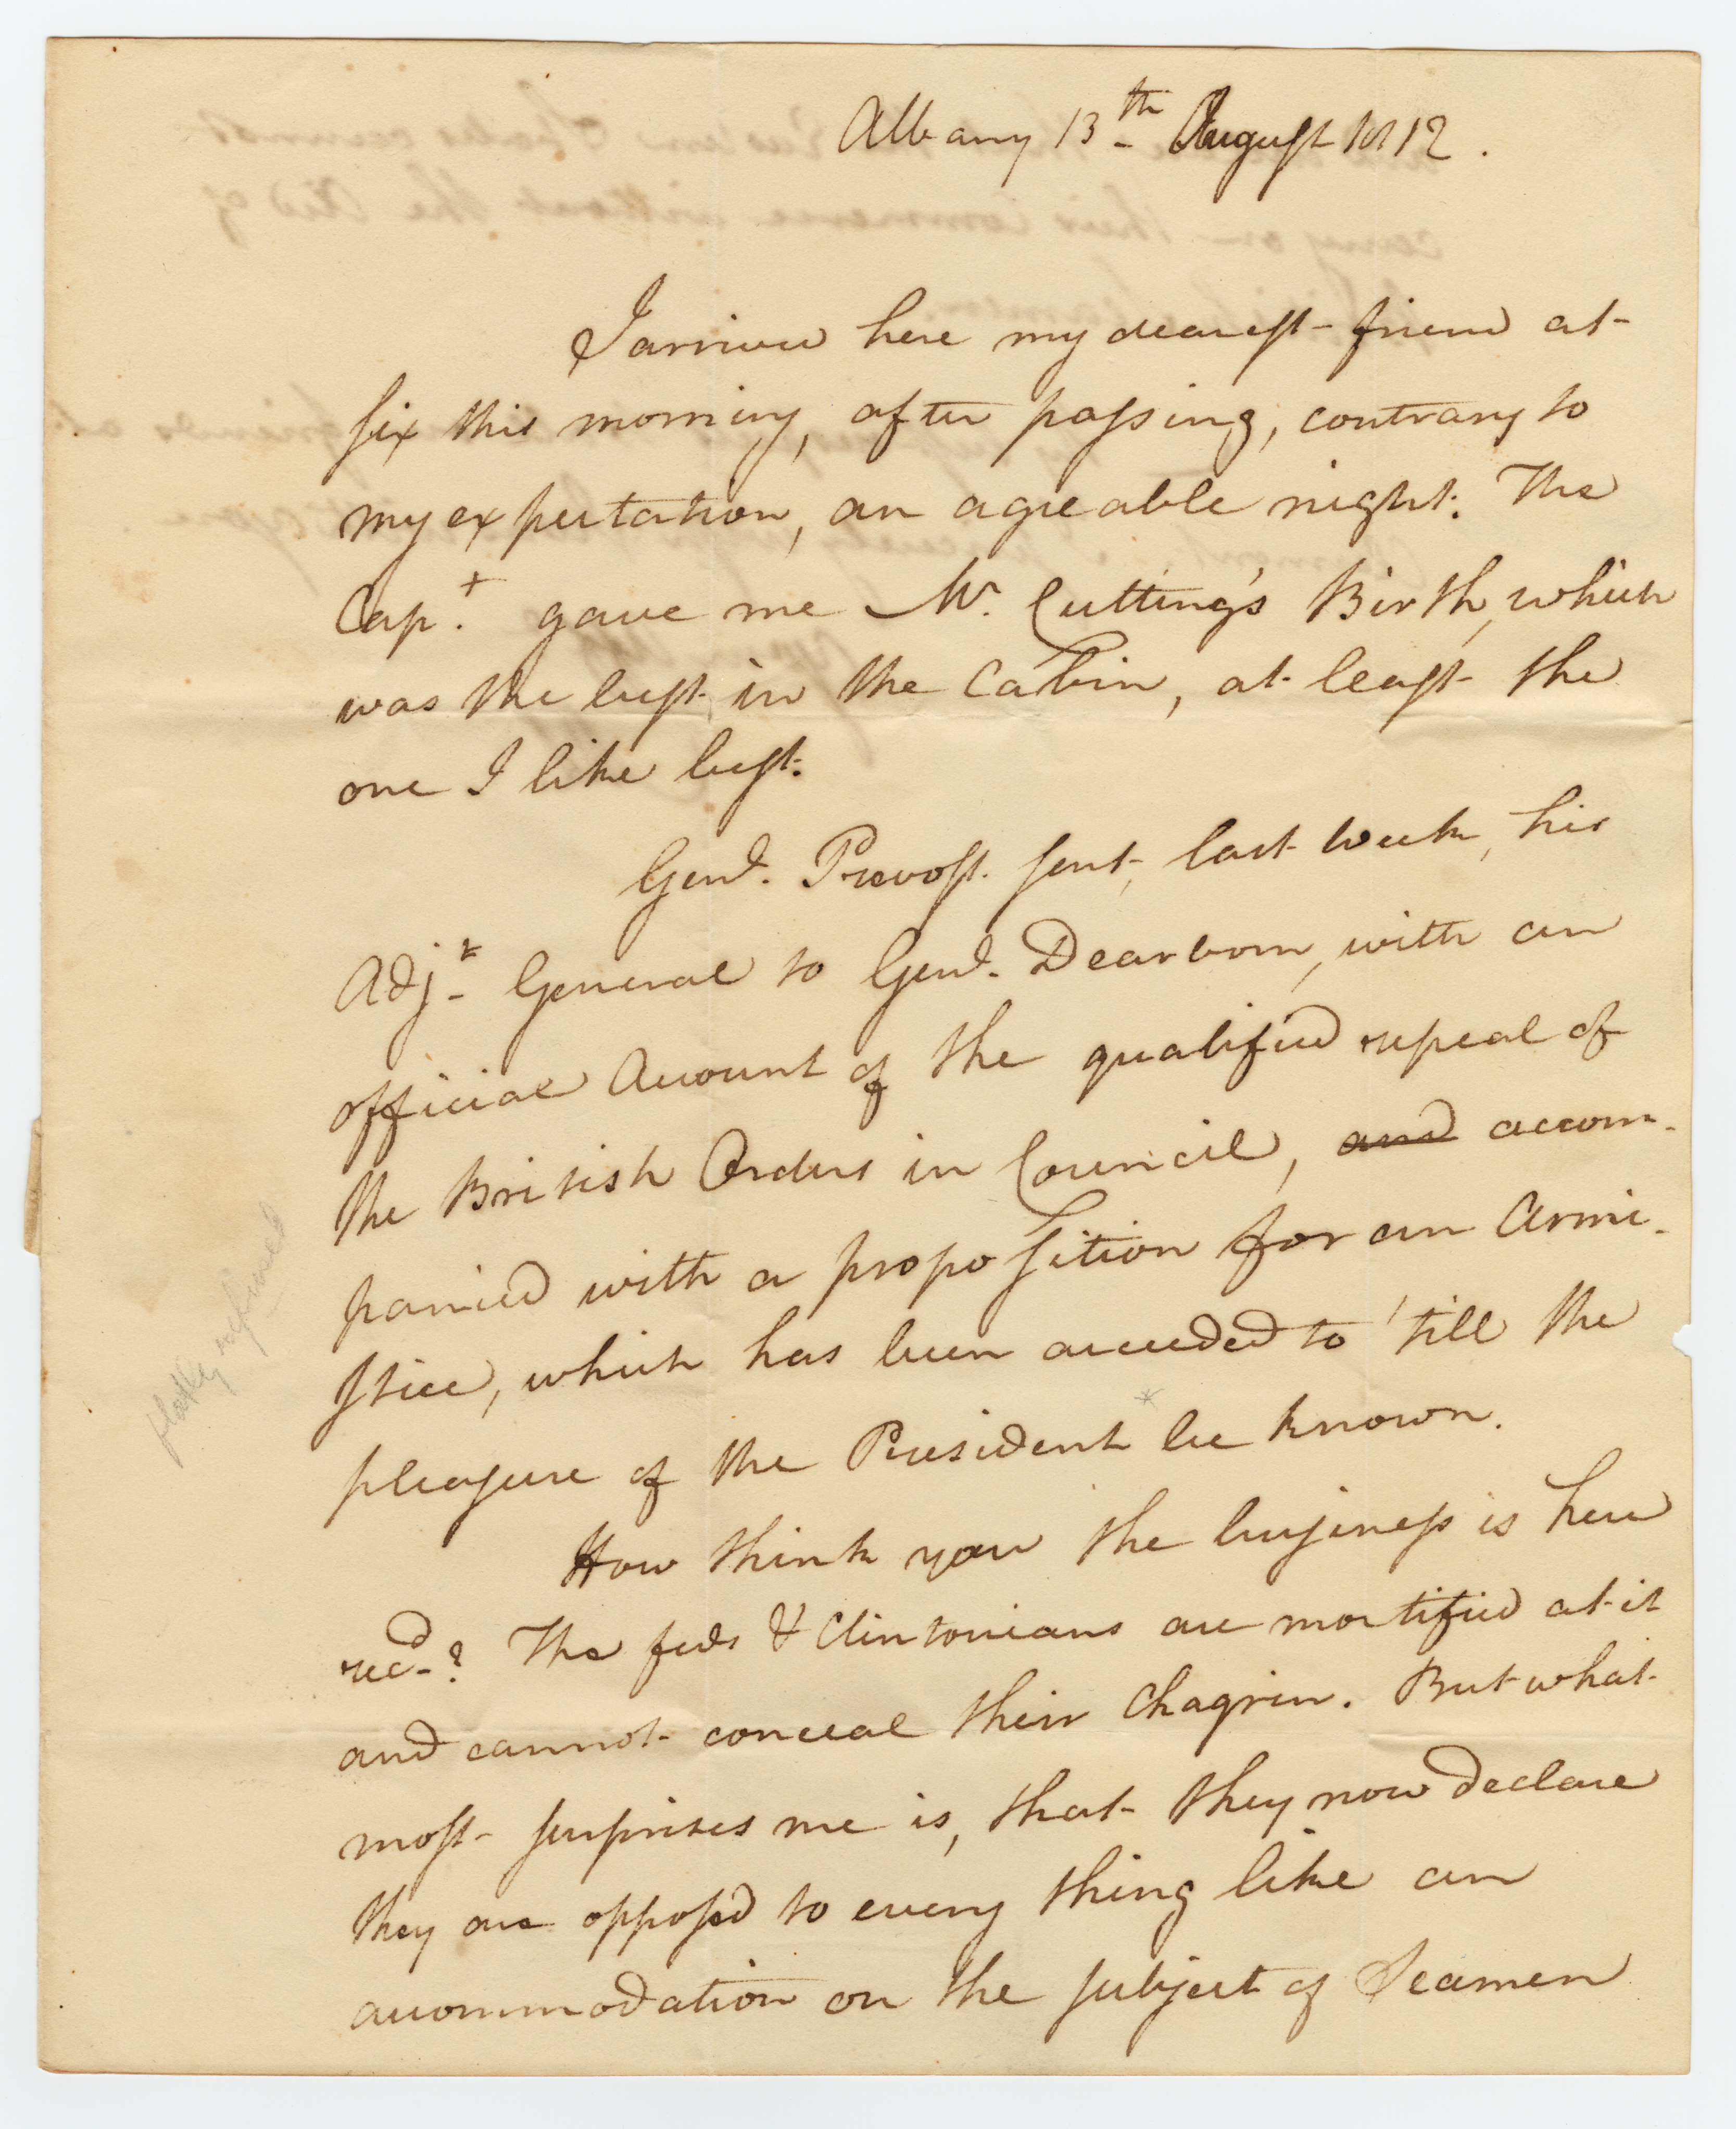 Albany 13th August 1812.
I arrived here my dearest friend at
six this morning, after passing, contrary to
my expectation, an agreable night. The
Capt. gave me Mr. Cutting's Birth, which
was the best in the Cabin, at least the
one I like best.
Genl. Prevost sent, last week, his
Adjt. General to Genl. Dearborn, with an
official Account of the qualified repeal of
the British Orders in Council, and accom-
panied with a proposition for an Armi-
stice, which has been acceeded to 'till the
pleasure of the President be known.
*
flatly refused
How think you the business is here
recd.? The feds & Clintonians are mortified at it
and cannot conceal their Chagrin. But what
most surprises me is, that they now declare
they are opposed to every thing like an
accommodation on the subject of Seamen